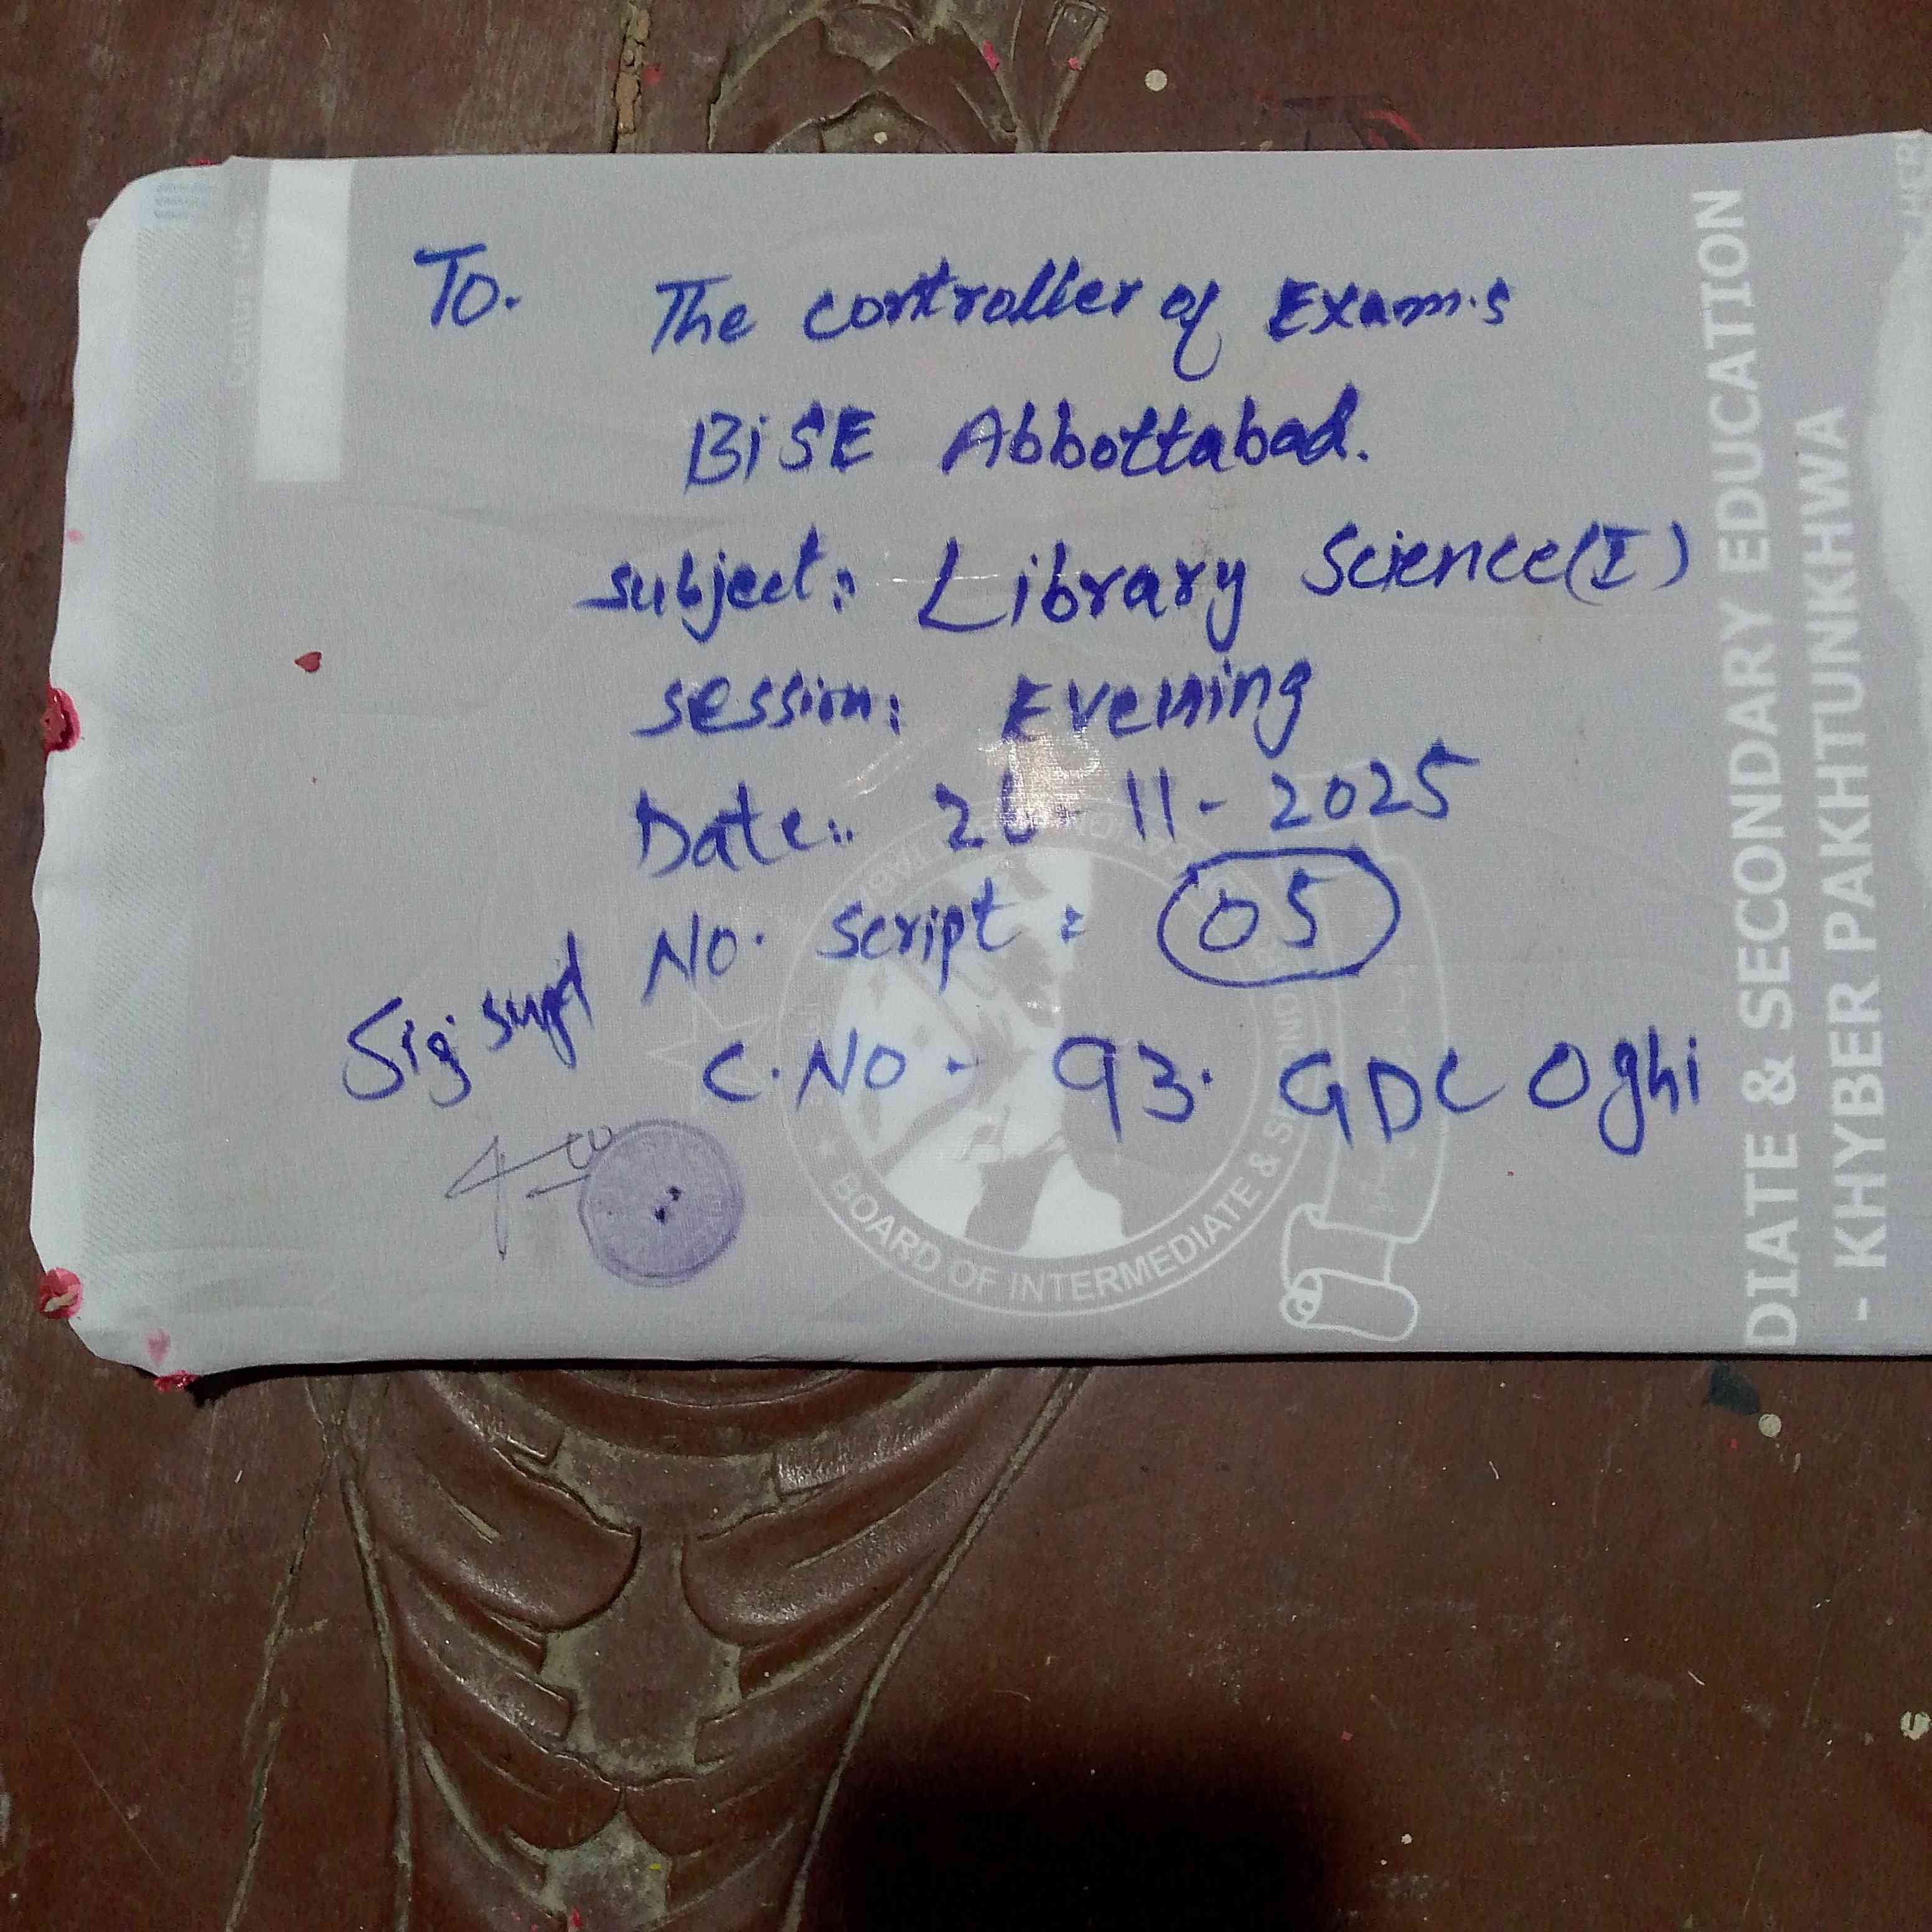 To. The controller of Exam.s
BiSE Abbottabad.
subject: Library Science(I)
session: Evening
Date:. 26-11-2025
No. script: 05
Sig supt
C.No - 93. GDC Oghi
BOARD OF INTERMEDIATE &
DIATE & SECONDARY EDUCATION
- KHYBER PAKHTUNKHWA